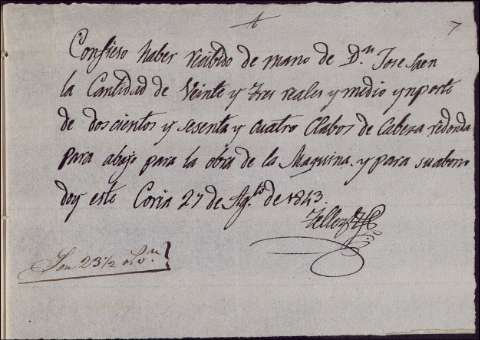 7
Confieso haber recibido de mano de Dn Jose
la Cantidad de Veinte y tres reales y medio ymporte
de doscientos y sesenta y cuatro Clabos de Cabeza redonda
para abajo para la obra de la Maquina. y para su abono
doy este Coria 27 de Agto de 1843.
Tellez
Son 23½ rs vn